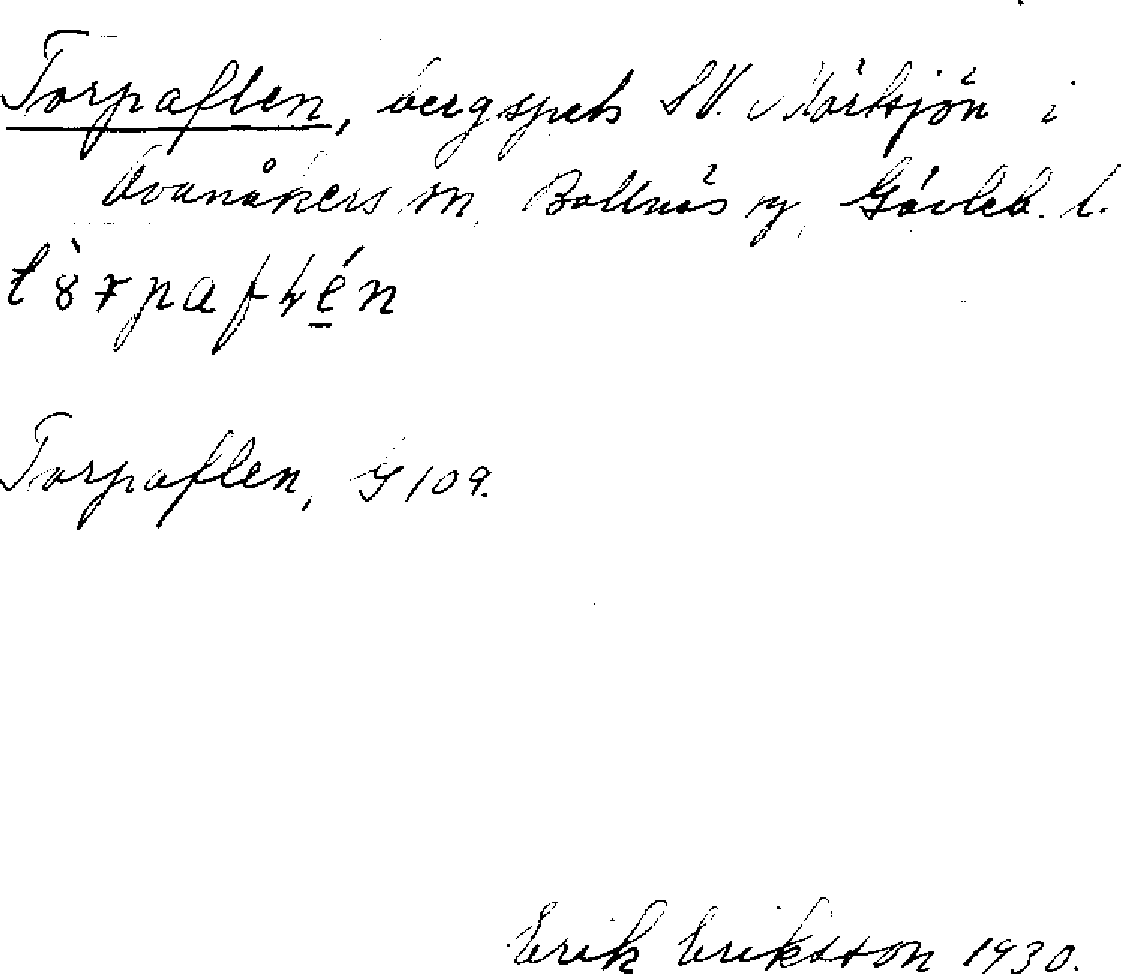 Torpaflen, bergspets SV. Mörtsjön i
Ovanåkers sn, Bollnäs sg, Gävleb. l.
Torpaflen, G 109.
Erik Eriksson 1930.